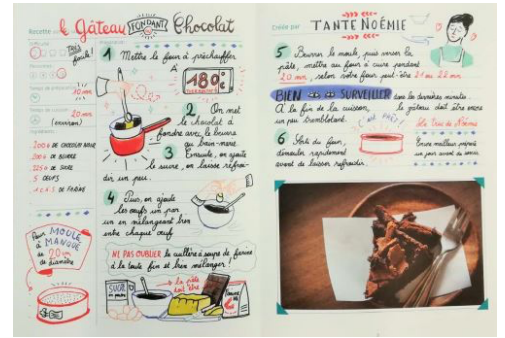 Recette
le Gâteau FONDANT Chocolat
Difficulté
Très facile !
10 mn
20 mn
(environ)
200g DE CHOCOLAT NOIR
200g DE BEURRE
225g DE SUCRE
5 OEUFS
1 C.À.S DE FARINE
Pour MOULE
à MANQUÉ
de 20 cm
de diamètre
1 Mettre le four à préchauffer
À 180°
2. On met
le chocolat à
fondre avec le beurre
au bain-marie.
3 Ensuite, on ajoute
le sucre, on laisse refroi-
dir un peu.
4 Puis, on ajoute
les œufs un par
un en mélangeant bien
entre chaque œuf
NE PAS OUBLIER la cuillère à soupe de farine
à la toute fin et bien mélanger !
SUCRE
en poudre
la pâte
doit être
Créée par TANTE NOÉMIE
5 Beurrer le moule, puis verser la
pâte, mettre au four à cuire pendant
20 mn, selon votre four peut-être 21 ou 22 mn.
BIEN SURVEILLER dans les dernières minutes.
À la fin de la cuisson, le gâteau doit être encore
un peu tremblotant.
C'EST PRÊT !
6 Sorti du four,
démouler rapidement
avant de laisser refroidir.
Le Truc de Noémie
Encore meilleur préparé
un jour avant de servir.